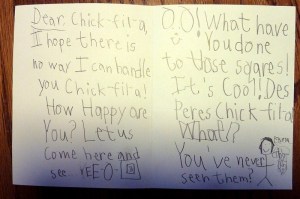 Dear, Chick-fil-a,
I hope there is
no way I can handle
you Chick-fil-a!
How Happy are
You? Let us
Come here and
see
O.O! What have
You done
to those sqares!
It's Cool! Des
Peres Chick-fil-a
What!?
You've never
seen them?